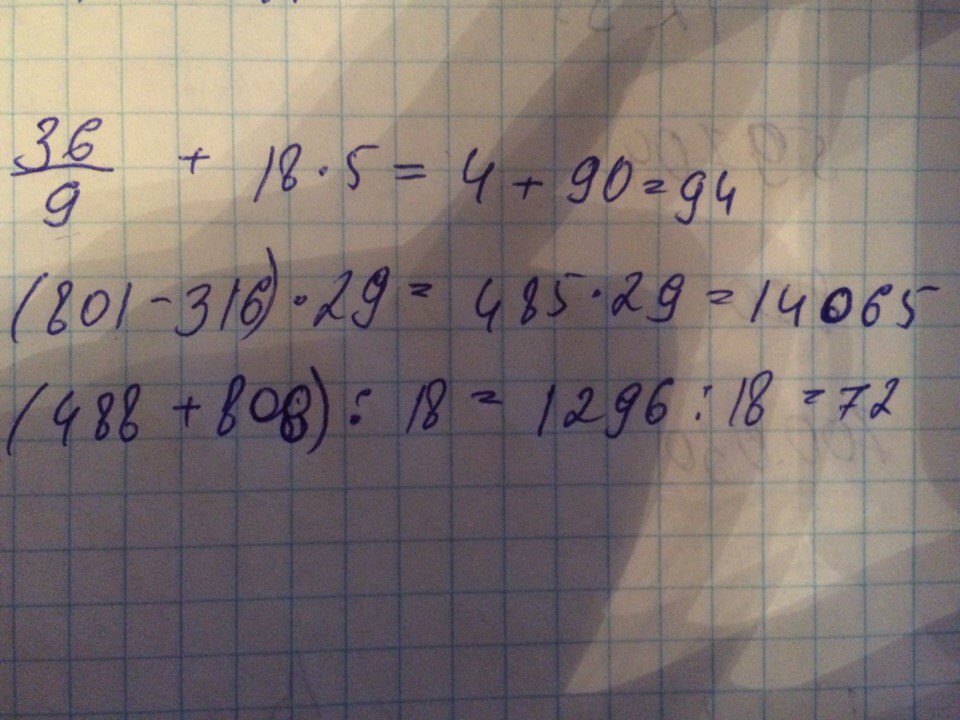 36/9 + 18·5 = 4 + 90 = 94
(801 - 316)·29 = 485·29 = 14065
(488 + 808) : 18 = 1296 : 18 = 72